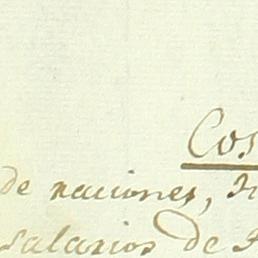 Cos
de naciones,
salarios de